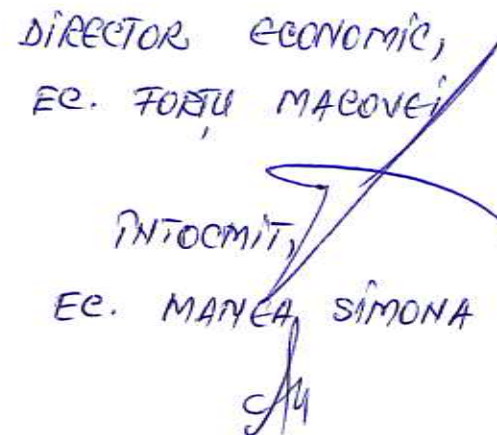 DIRECTOR ECONOMIC,
EC. FORȚU MACOVEI
ÎNTOCMIT,
EC. MANEA SIMONA